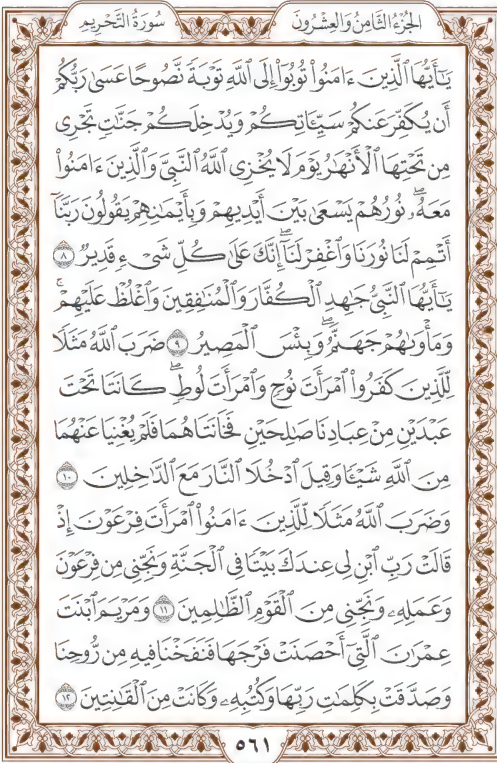 الجُزْءُ الثَّامِنُ وَالعِشْرُونَ سُورَةُ التَّحْرِيمِ
يَـٰٓأَيُّهَا ٱلَّذِينَ ءَامَنُواْ تُوبُوٓاْ إِلَى ٱللَّهِ تَوْبَةً نَّصُوحًا عَسَىٰ رَبُّكُمْ
أَن يُكَفِّرَ عَنكُمْ سَيِّـَٔاتِكُمْ وَيُدْخِلَكُمْ جَنَّـٰتٍ تَجْرِى
مِن تَحْتِهَا ٱلْأَنْهَـٰرُ يَوْمَ لَا يُخْزِى ٱللَّهُ ٱلنَّبِىَّ وَٱلَّذِينَ ءَامَنُواْ
مَعَهُۥۖ نُورُهُمْ يَسْعَىٰ بَيْنَ أَيْدِيهِمْ وَبِأَيْمَـٰنِهِمْ يَقُولُونَ رَبَّنَآ
أَتْمِمْ لَنَا نُورَنَا وَٱغْفِرْ لَنَآۖ إِنَّكَ عَلَىٰ كُلِّ شَىْءٍ قَدِيرٌ ٨
يَـٰٓأَيُّهَا ٱلنَّبِىُّ جَـٰهِدِ ٱلْكُفَّارَ وَٱلْمُنَـٰفِقِينَ وَٱغْلُظْ عَلَيْهِمْۚ
وَمَأْوَىٰهُمْ جَهَنَّمُۖ وَبِئْسَ ٱلْمَصِيرُ ٩ ضَرَبَ ٱللَّهُ مَثَلًا
لِّلَّذِينَ كَفَرُواْ ٱمْرَأَتَ نُوحٍ وَٱمْرَأَتَ لُوطٍۖ كَانَتَا تَحْتَ
عَبْدَيْنِ مِنْ عِبَادِنَا صَـٰلِحَيْنِ فَخَانَتَاهُمَا فَلَمْ يُغْنِيَا عَنْهُمَا
مِنَ ٱللَّهِ شَيْـًٔا وَقِيلَ ٱدْخُلَا ٱلنَّارَ مَعَ ٱلدَّٰخِلِينَ ١٠
وَضَرَبَ ٱللَّهُ مَثَلًا لِّلَّذِينَ ءَامَنُواْ ٱمْرَأَتَ فِرْعَوْنَ إِذْ
قَالَتْ رَبِّ ٱبْنِ لِى عِندَكَ بَيْتًا فِى ٱلْجَنَّةِ وَنَجِّنِى مِن فِرْعَوْنَ
وَعَمَلِهِۦ وَنَجِّنِى مِنَ ٱلْقَوْمِ ٱلظَّـٰلِمِينَ ١١ وَمَرْيَمَ ٱبْنَتَ
عِمْرَٰنَ ٱلَّتِىٓ أَحْصَنَتْ فَرْجَهَا فَنَفَخْنَا فِيهِ مِن رُّوحِنَا
وَصَدَّقَتْ بِكَلِمَـٰتِ رَبِّهَا وَكُتُبِهِۦ وَكَانَتْ مِنَ ٱلْقَـٰنِتِينَ ١٢
٥٦١